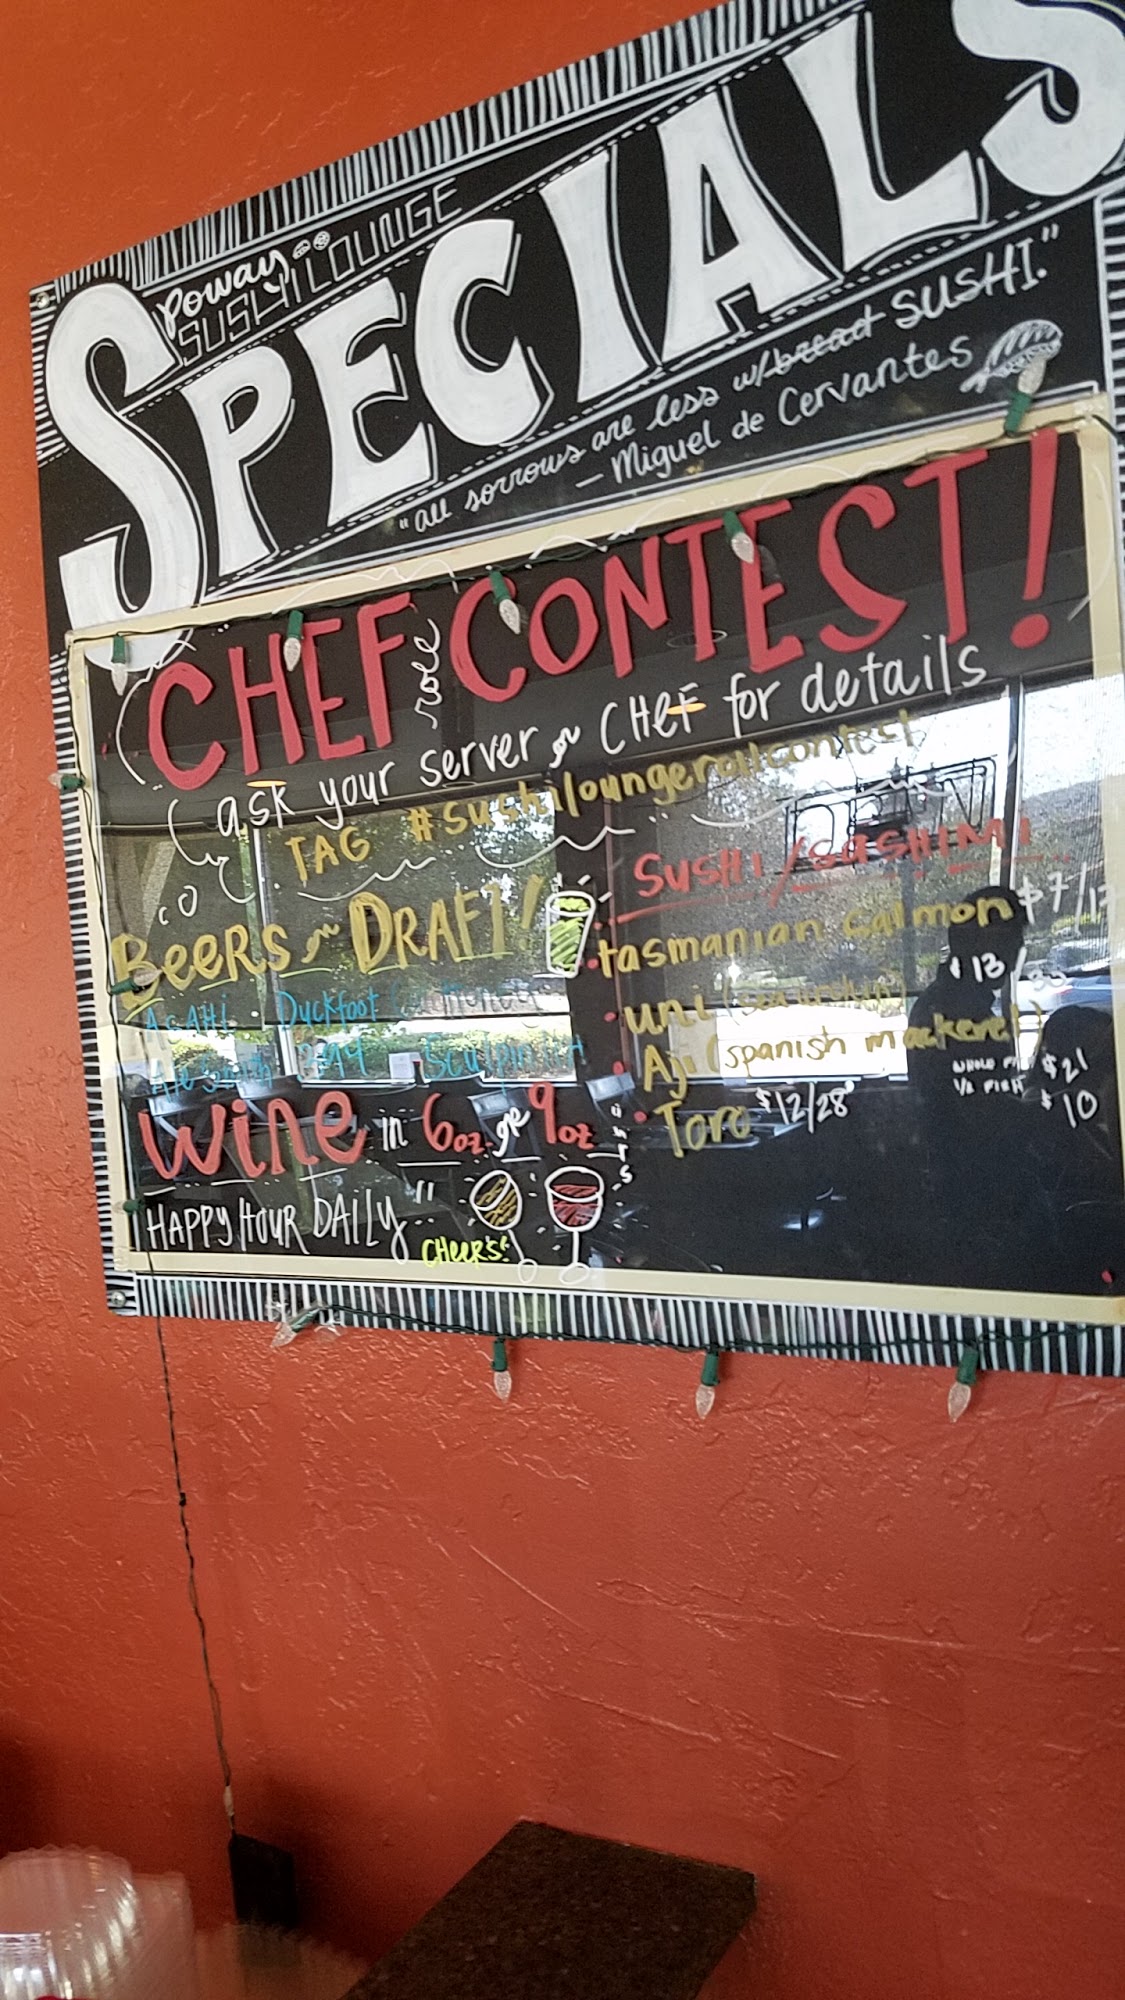 Poway
SUSHI LOUNGE
SPECIALS
"all sorrows are less w/bread SUSHI."
— Miguel de Cervantes
CHEF CONTEST!
ask your server or CHEF for details
TAG #sushiloungerollcontest
BEERS on DRAFT!
ASAHI Duckfoot
394 Sculpin IPA
Wine in 6oz or 9oz
HAPPY HOUR DAILY
CHEERS!
SUSHI/SASHIMI
tasmanian salmon $7/
uni $13/
Aji (spanish mackerel)
WHOLE $21
1/2 FISH $10
Toro $12/28